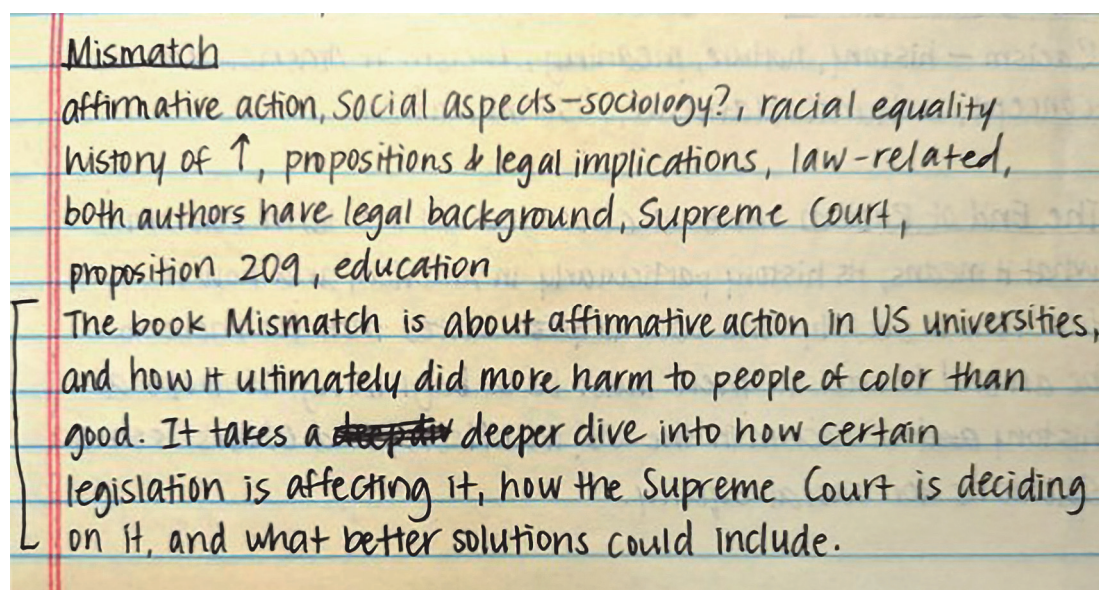 Mismatch
affirmative action, social aspects-sociology?, racial equality
history of ↑, propositions & legal implications, law-related,
both authors have legal background, Supreme Court,
proposition 209, education
The book Mismatch is about affirmative action in US universities,
and how it ultimately did more harm to people of color than
good. It takes a deeper dive into how certain
legislation is affecting it, how the Supreme Court is deciding
on it, and what better solutions could include.